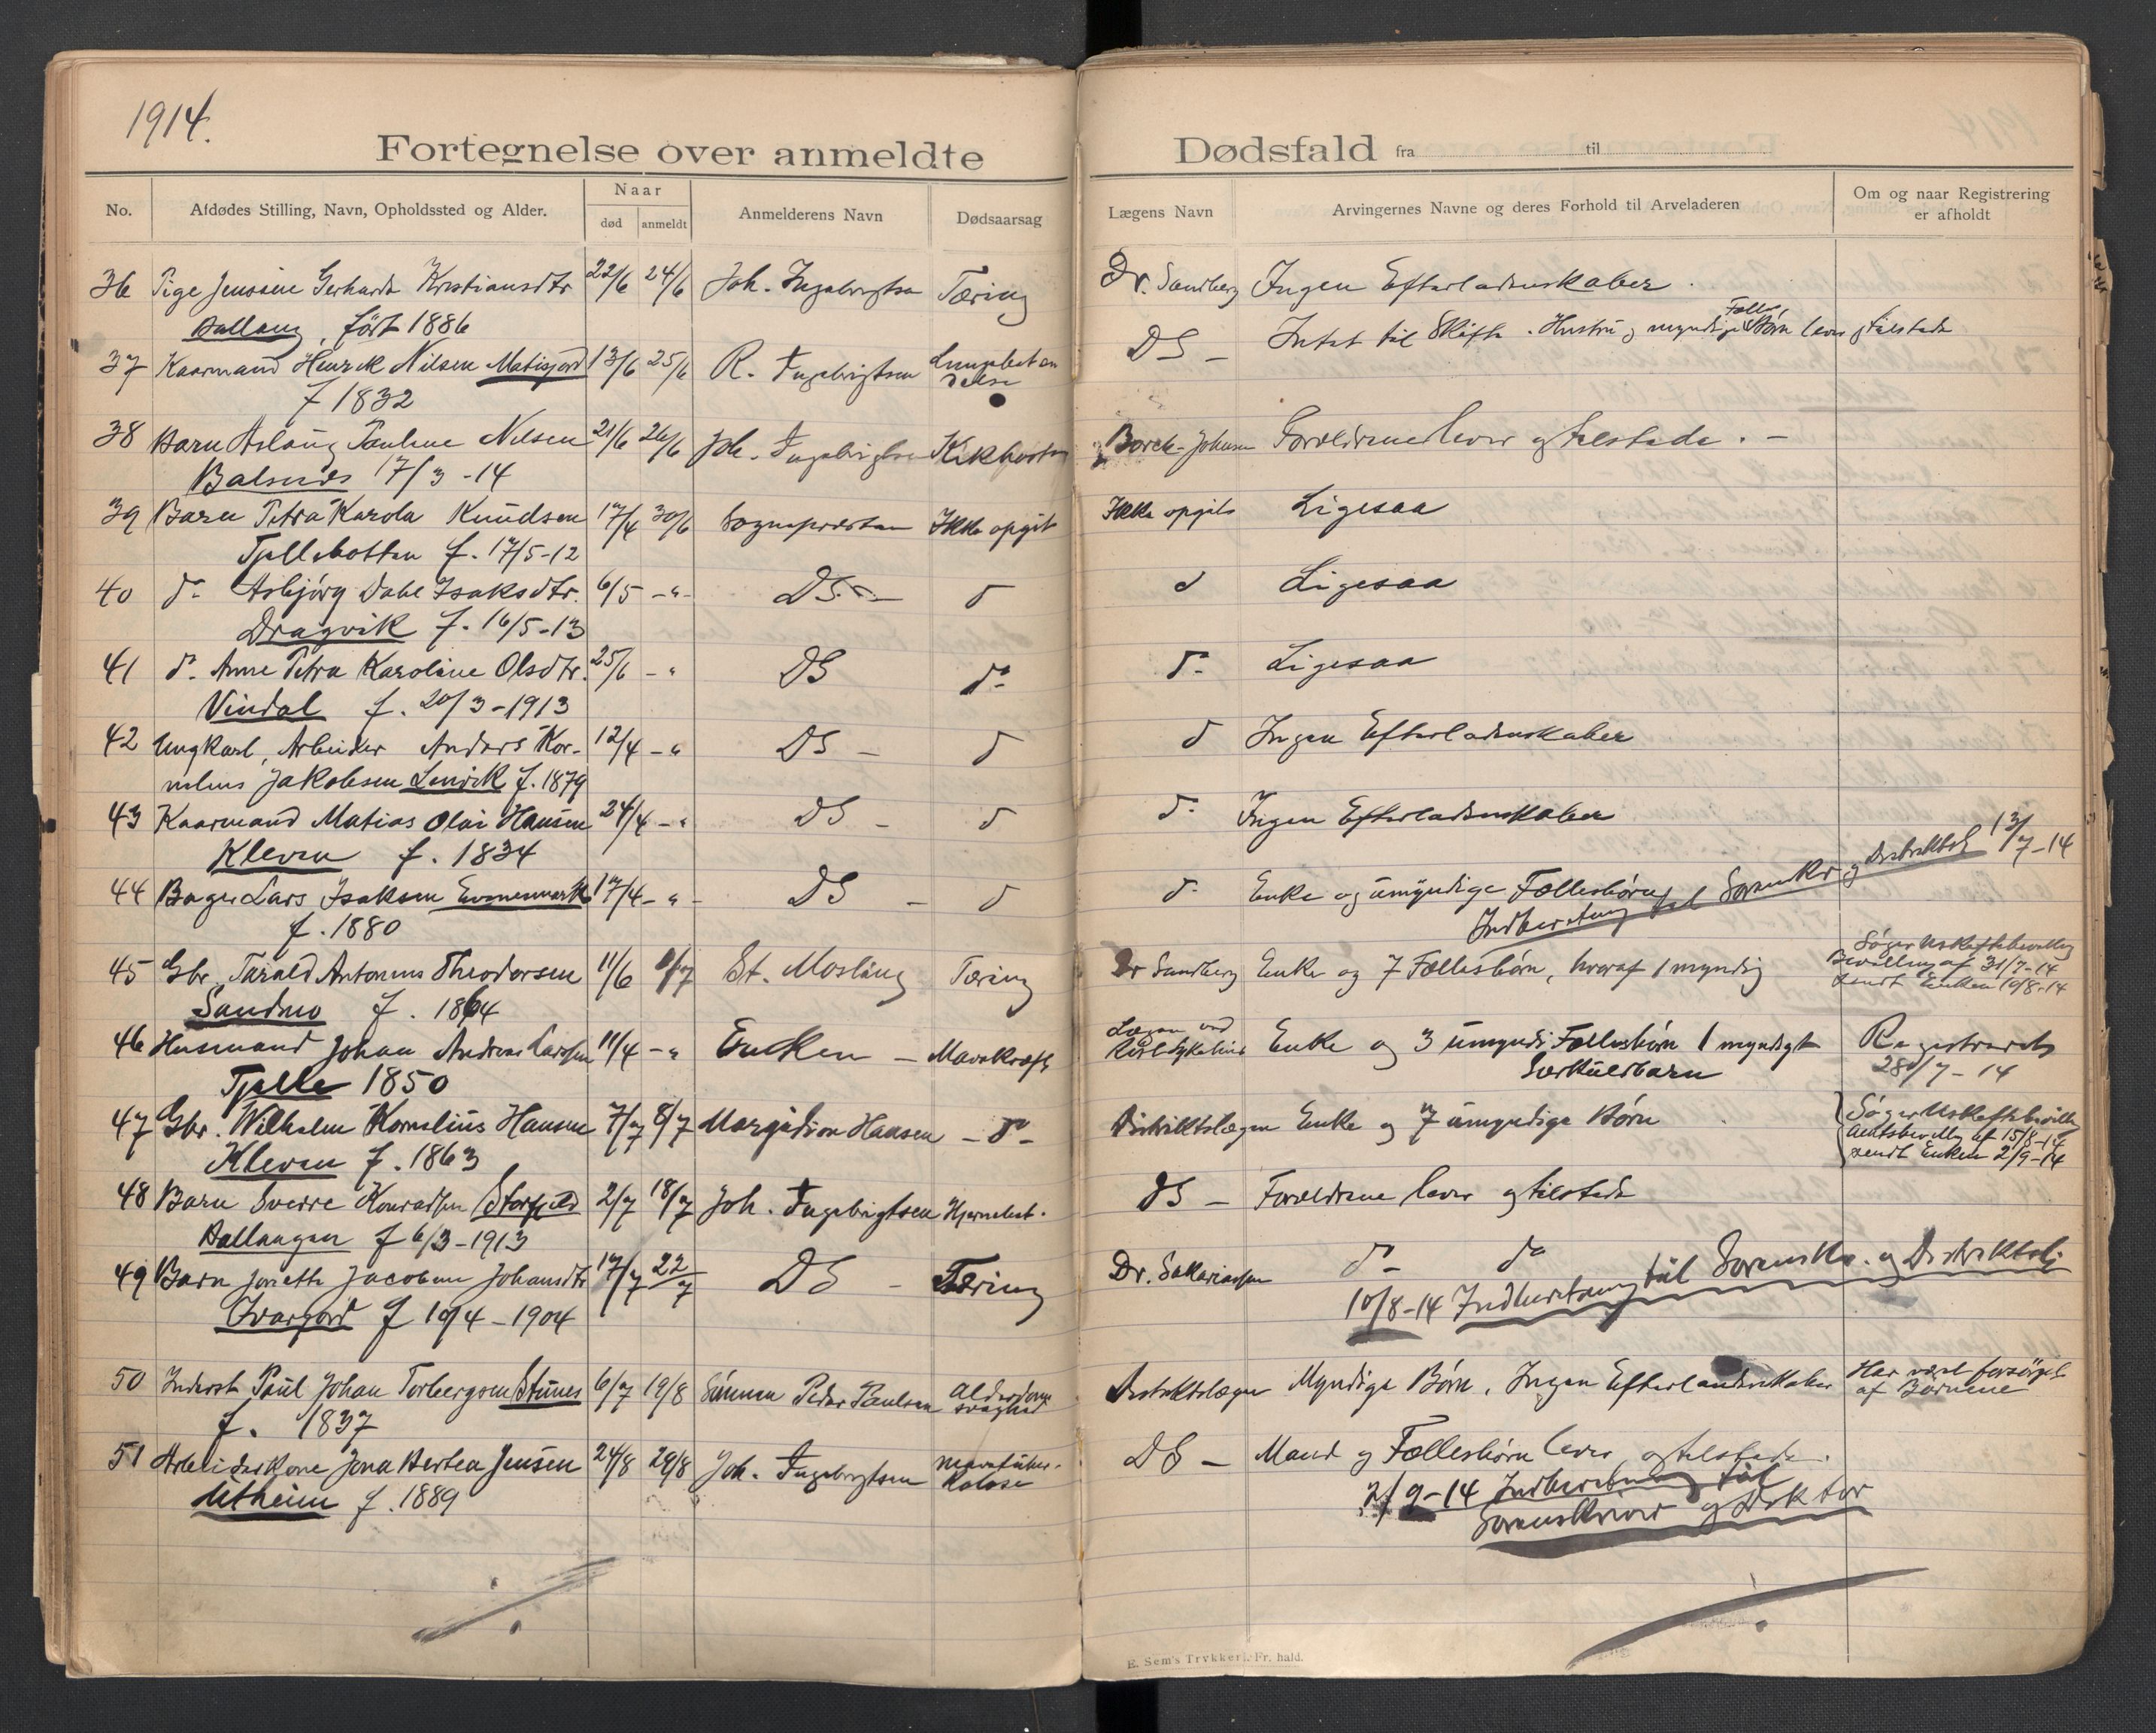 1914.
Fortegnelse over anmeldte Dødsfald fra til
No. Afdødes Stilling, Navn, Opholdssted og Alder. Naar død anmeldt Anmelderens Navn Dødsaarsag Lægens Navn Arvingernes Navne og deres Forhold til Arveladeren Om og naar Registrering er afholdt
36 Pige Jensine Gerharda Kristiansdtr 22/6 24/6 Joh. Ingebrigtsen Tæring Dr. Sandberg Ingen Efterladenskaber.
Ballang, født 1886
37 Kaarmand Henrik Nilsen 13/6 25/6 R. Ingebrigtsen Lungebetændelse DS - Intet til Skifte. Hustru og myndige Fælles Børn lever og tilstede
f 1832
38 Barn Aslaug Pauline Nilsen 21/6 26/6 Joh. Ingebrigtsen Kikhoste Borch-Johnsen Forældrene lever og tilstede. -
Balsnes 17/3-14
39 Barn Petra Karola Knudsen 17/4 30/6 Sognepresten Ikke opgit Ikke opgit Ligesaa
Tjellebotten f. 17/5-12
40 do Asbjørg Isaksdtr. 6/5 -"- DS - do do Ligesaa
Dragvik f. 16/5-13
41 do Anne Petra Karoline Olsdtr. 25/6 -" DS do do Ligesaa
Vindal f. 20/3-1913
42 Ungkarl, Arbeider Anders Kor- 12/4 -" DS - do do Ingen Efterladenskaber
nelius Jakobsen Lenvik f. 1879
43 Kaarmand Matias Olai Hansen 24/4 -" DS - do do Ingen Efterladenskaber
Kleven f. 1834
44 Bager Lars Isaksen Evenesmark 17/4 -"- DS - do do Enke og umyndige Fællesbørn
f. 1880 Indberetning til Sorenskr og Distriktsl 13/7-14
45 Gbr. Tarald Antonius Theodorsen 11/6 St. Mosling Tæring Dr Sandberg Enke og 7 Fællesbørn, hvoraf 1 myndig Søger Uskiftebevilling
Sandmo f. 1864 Bevilling af 31/7-14
sendt Enken 10/8-14
46 Husmand Johan Andreas Larssen 11/4 -" Enken - Mavekræft Lægen ved Enke og 3 umyndi Fællesbørn 1 myndigt Registreret
Tjelle 1850 Særkuldbarn 28/7-14
47 Gbr. Wilhelm Kornelius Hansen 7/7 8/7 Hansen - do - Distriktslægen Enke og 7 umyndige Børn Søger Uskiftebevilling
Kleven f. 1863 Amtsbevilling af 15/8-14
sendt Enken 2/9-14
48 Barn Sverre Konradsen 2/7 18/7 Joh. Ingebrigtsen Hjernebet. DS - Forældrene lever og tilstede
Ballangen f 6/3-1913
49 Barn Jacobine Johansdtr 17/7 22/7 DS - Tæring Dr. Sakariassen do do
f 10/4-1904 10/8-14 Indberetning til Sorenskr. og Distriktsl
50 Inderst Paul Johan Torbergsen 6/7 19/8 Sønnen Peder Paulsen Alderdoms svaghed Distriktslægen Myndige Børn. Ingen Efterladenskaber Har været forsørget
f. 1837 af Børnene
51 Arbeiderkone Jona Bertea Jensen 24/8 29/8 Joh. Ingebrigtsen DS - Mand og Fællesbørn lever og tilstede.
f. 1889 2/9-14 Indberetning til
Sorenskriver og Doktor
E. Sem's Trykkeri, Fr. hald.